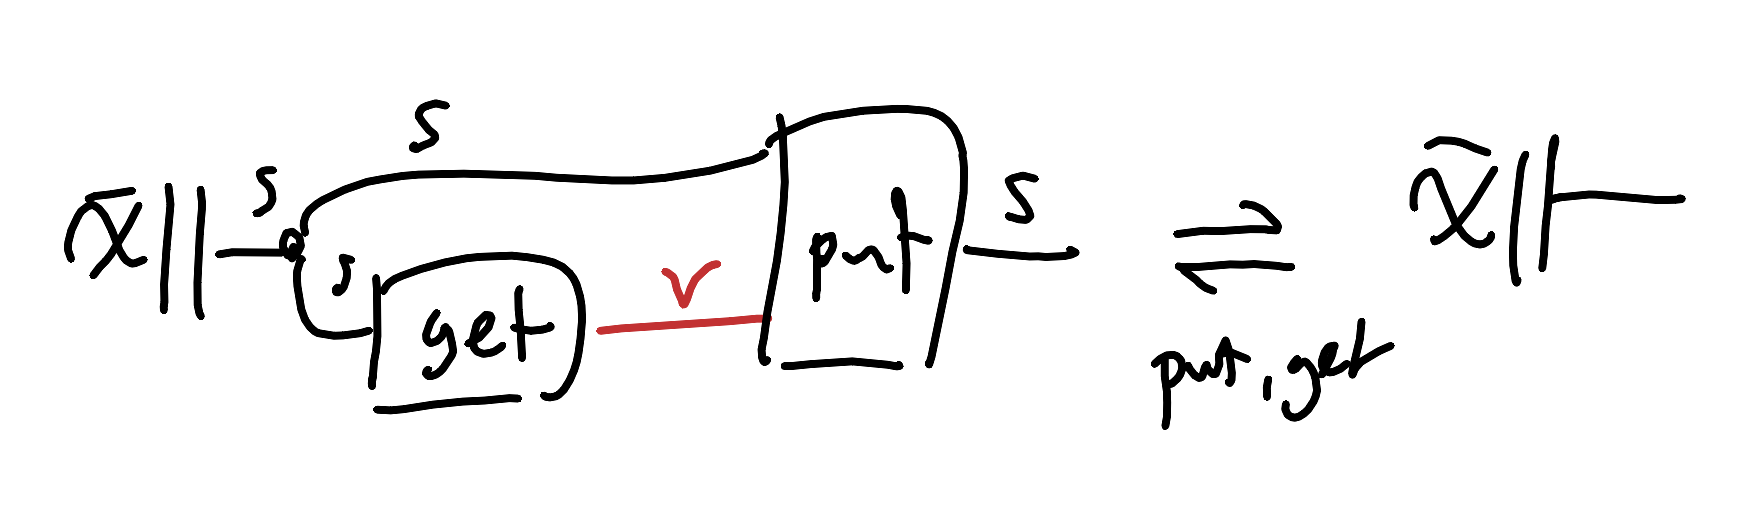 x̄ || s s s get v put s ⇌ x̄ ||
put, get